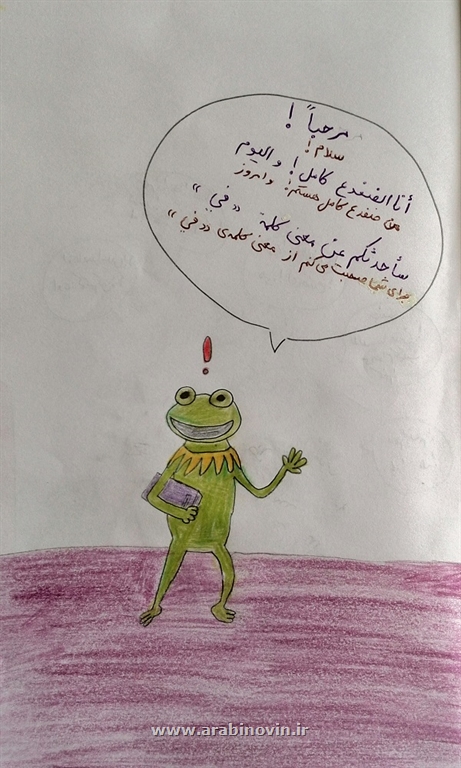 مرحباً !
سلام !
أنا الضفدع كامل ! و اليوم
من ضفدع کامل هستم ! و امروز
سأحدثكم عن معنى كلمة ((في))
برای شما صحبت می کنم از معنی کلمه ی ((في))
!
www.arabinovin.ir